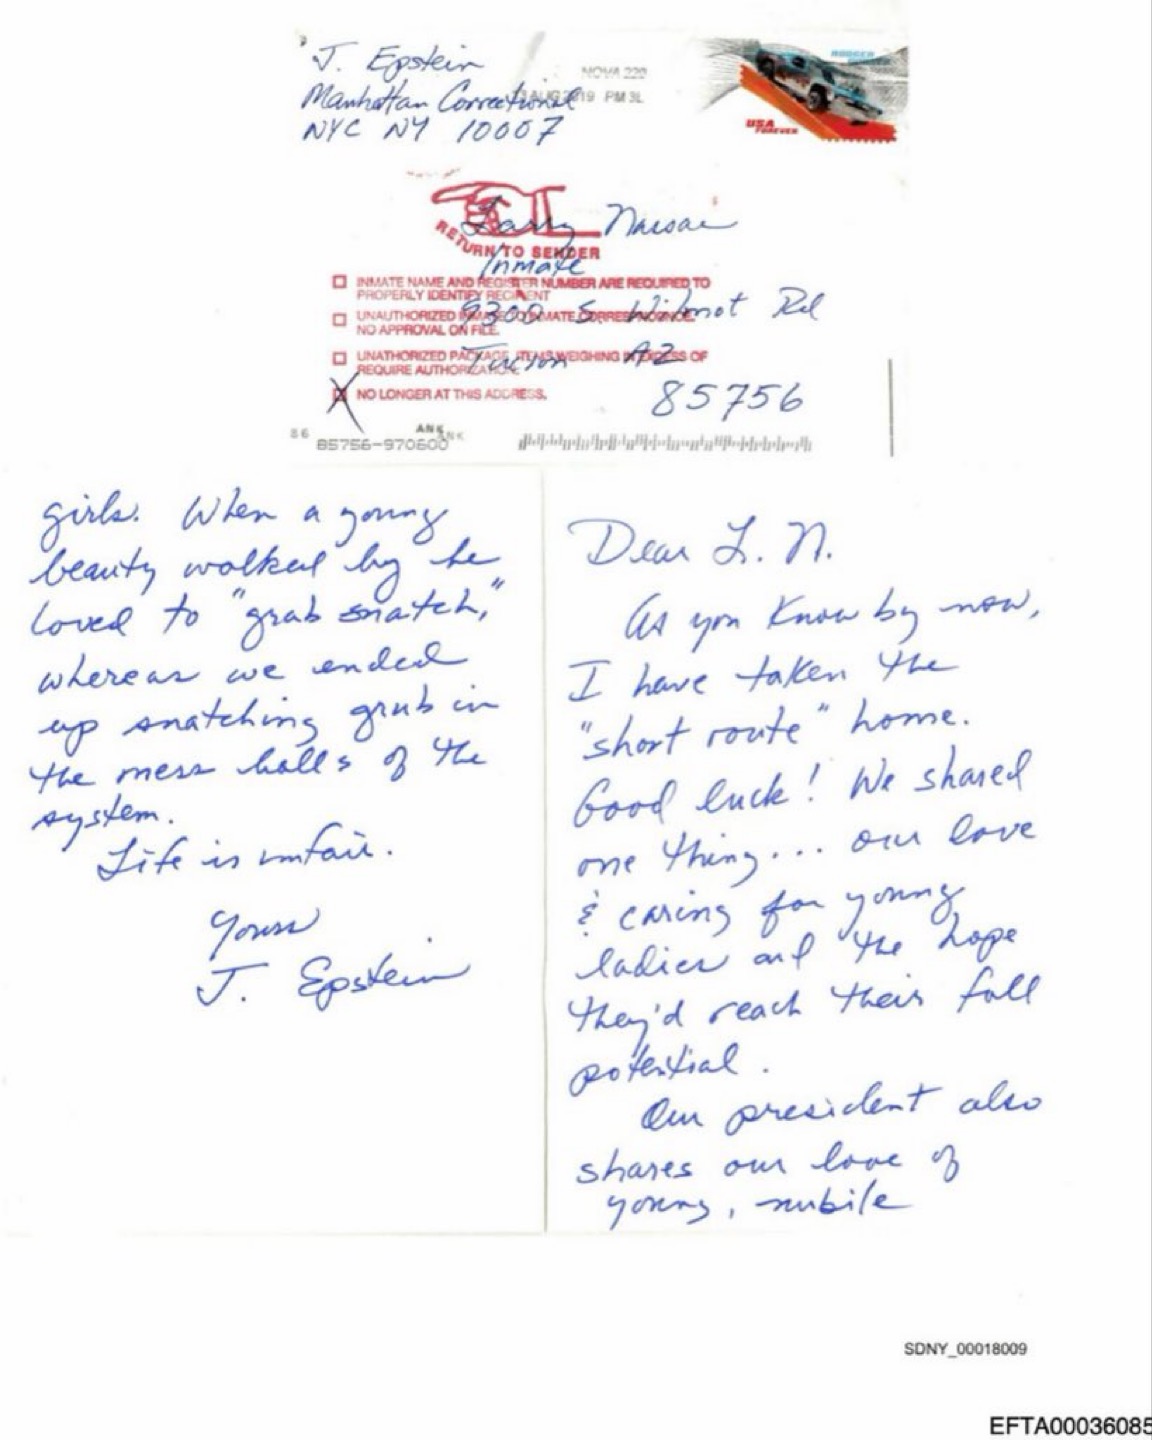 J. Epstein
Manhattan Correctional
NYC NY 10007
NOVA 220
AUG 2019 PM 3L
USA
FOREVER
Larry
RETURN TO SENDER
Inmate
INMATE NAME AND REGISTER NUMBER ARE REQUIRED TO
PROPERLY IDENTIFY RECIPIENT
9300 S. Wilmot Rd
UNAUTHORIZED INMATE TO INMATE CORRESPONDENCE.
NO APPROVAL ON FILE.
Tucson AZ
UNATHORIZED PACKAGE, ITEMS WEIGHING IN EXCESS OF
REQUIRE AUTHORIZATION.
85756
X NO LONGER AT THIS ADDRESS.
86
ANK
ANK
85756-970600
Dear L. N.
As you know by now,
I have taken the
"short route" home.
Good luck! We shared
one thing... our love
& caring for young
ladies and the hope
they'd reach their full
potential.
Our president also
shares our love of
young, nubile
girls. When a young
beauty walked by he
loved to "grab snatch,"
whereas we ended
up snatching grub in
the mess halls of the
system.
Life is unfair.
Yours
J. Epstein
SDNY_00018009
EFTA00036085